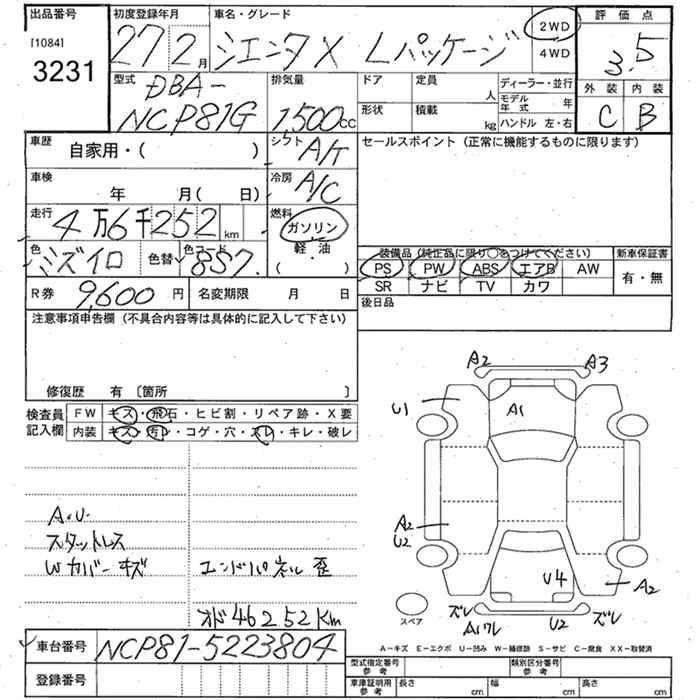 出品番号 初度登録年月 車名・グレード 2WD 評価点
[1084] 27 2月 シエンタ X Lパッケージ 4WD 3.5
3231
型式 DBA- 排気量 ドア 定員 人 ディーラー・並行 外装 内装
NCP81G 1,500cc 形状 積載 kg モデル年式 年 C B
ハンドル 左・右
車歴 自家用・( ) シフト A/T セールスポイント (正常に機能するものに限ります)
車検 年 月(日) 冷房 A/C
走行 4万6千252km 燃料 ガソリン
軽・油
( )
色 ミズイロ 色替 色コード 8S7 装備品 (純正品に限り○をつけてください) 新車保証書
PS PW ABS エアB AW 有・無
SR ナビ TV カワ
R券 9,600円 名変期限 月 日 後日品
注意事項申告欄 (不具合内容等は具体的に記入して下さい)
修復歴 有 [箇所 ]
検査員記入欄 FW キズ・飛石・ヒビ割・リペア跡・X要
内装 キズ・汚レ・コゲ・穴・スレ・キレ・破レ
A2 A3
U1 A1
A.U.
スタットレス
Wカバーキズ エンドパネル 歪
オド46252Km
A2
U2
U4 A2
スペア ズレ ズレ
AワレU2
A－キズ E－エクボ U－凹み W－補修跡 S－サビ C－腐食 XX－取替済
車台番号 NCP81-5223804
登録番号
型式指定番号 参考 類別区分番号 参考
車庫証明用 参考 長さ cm 幅 cm 高さ cm